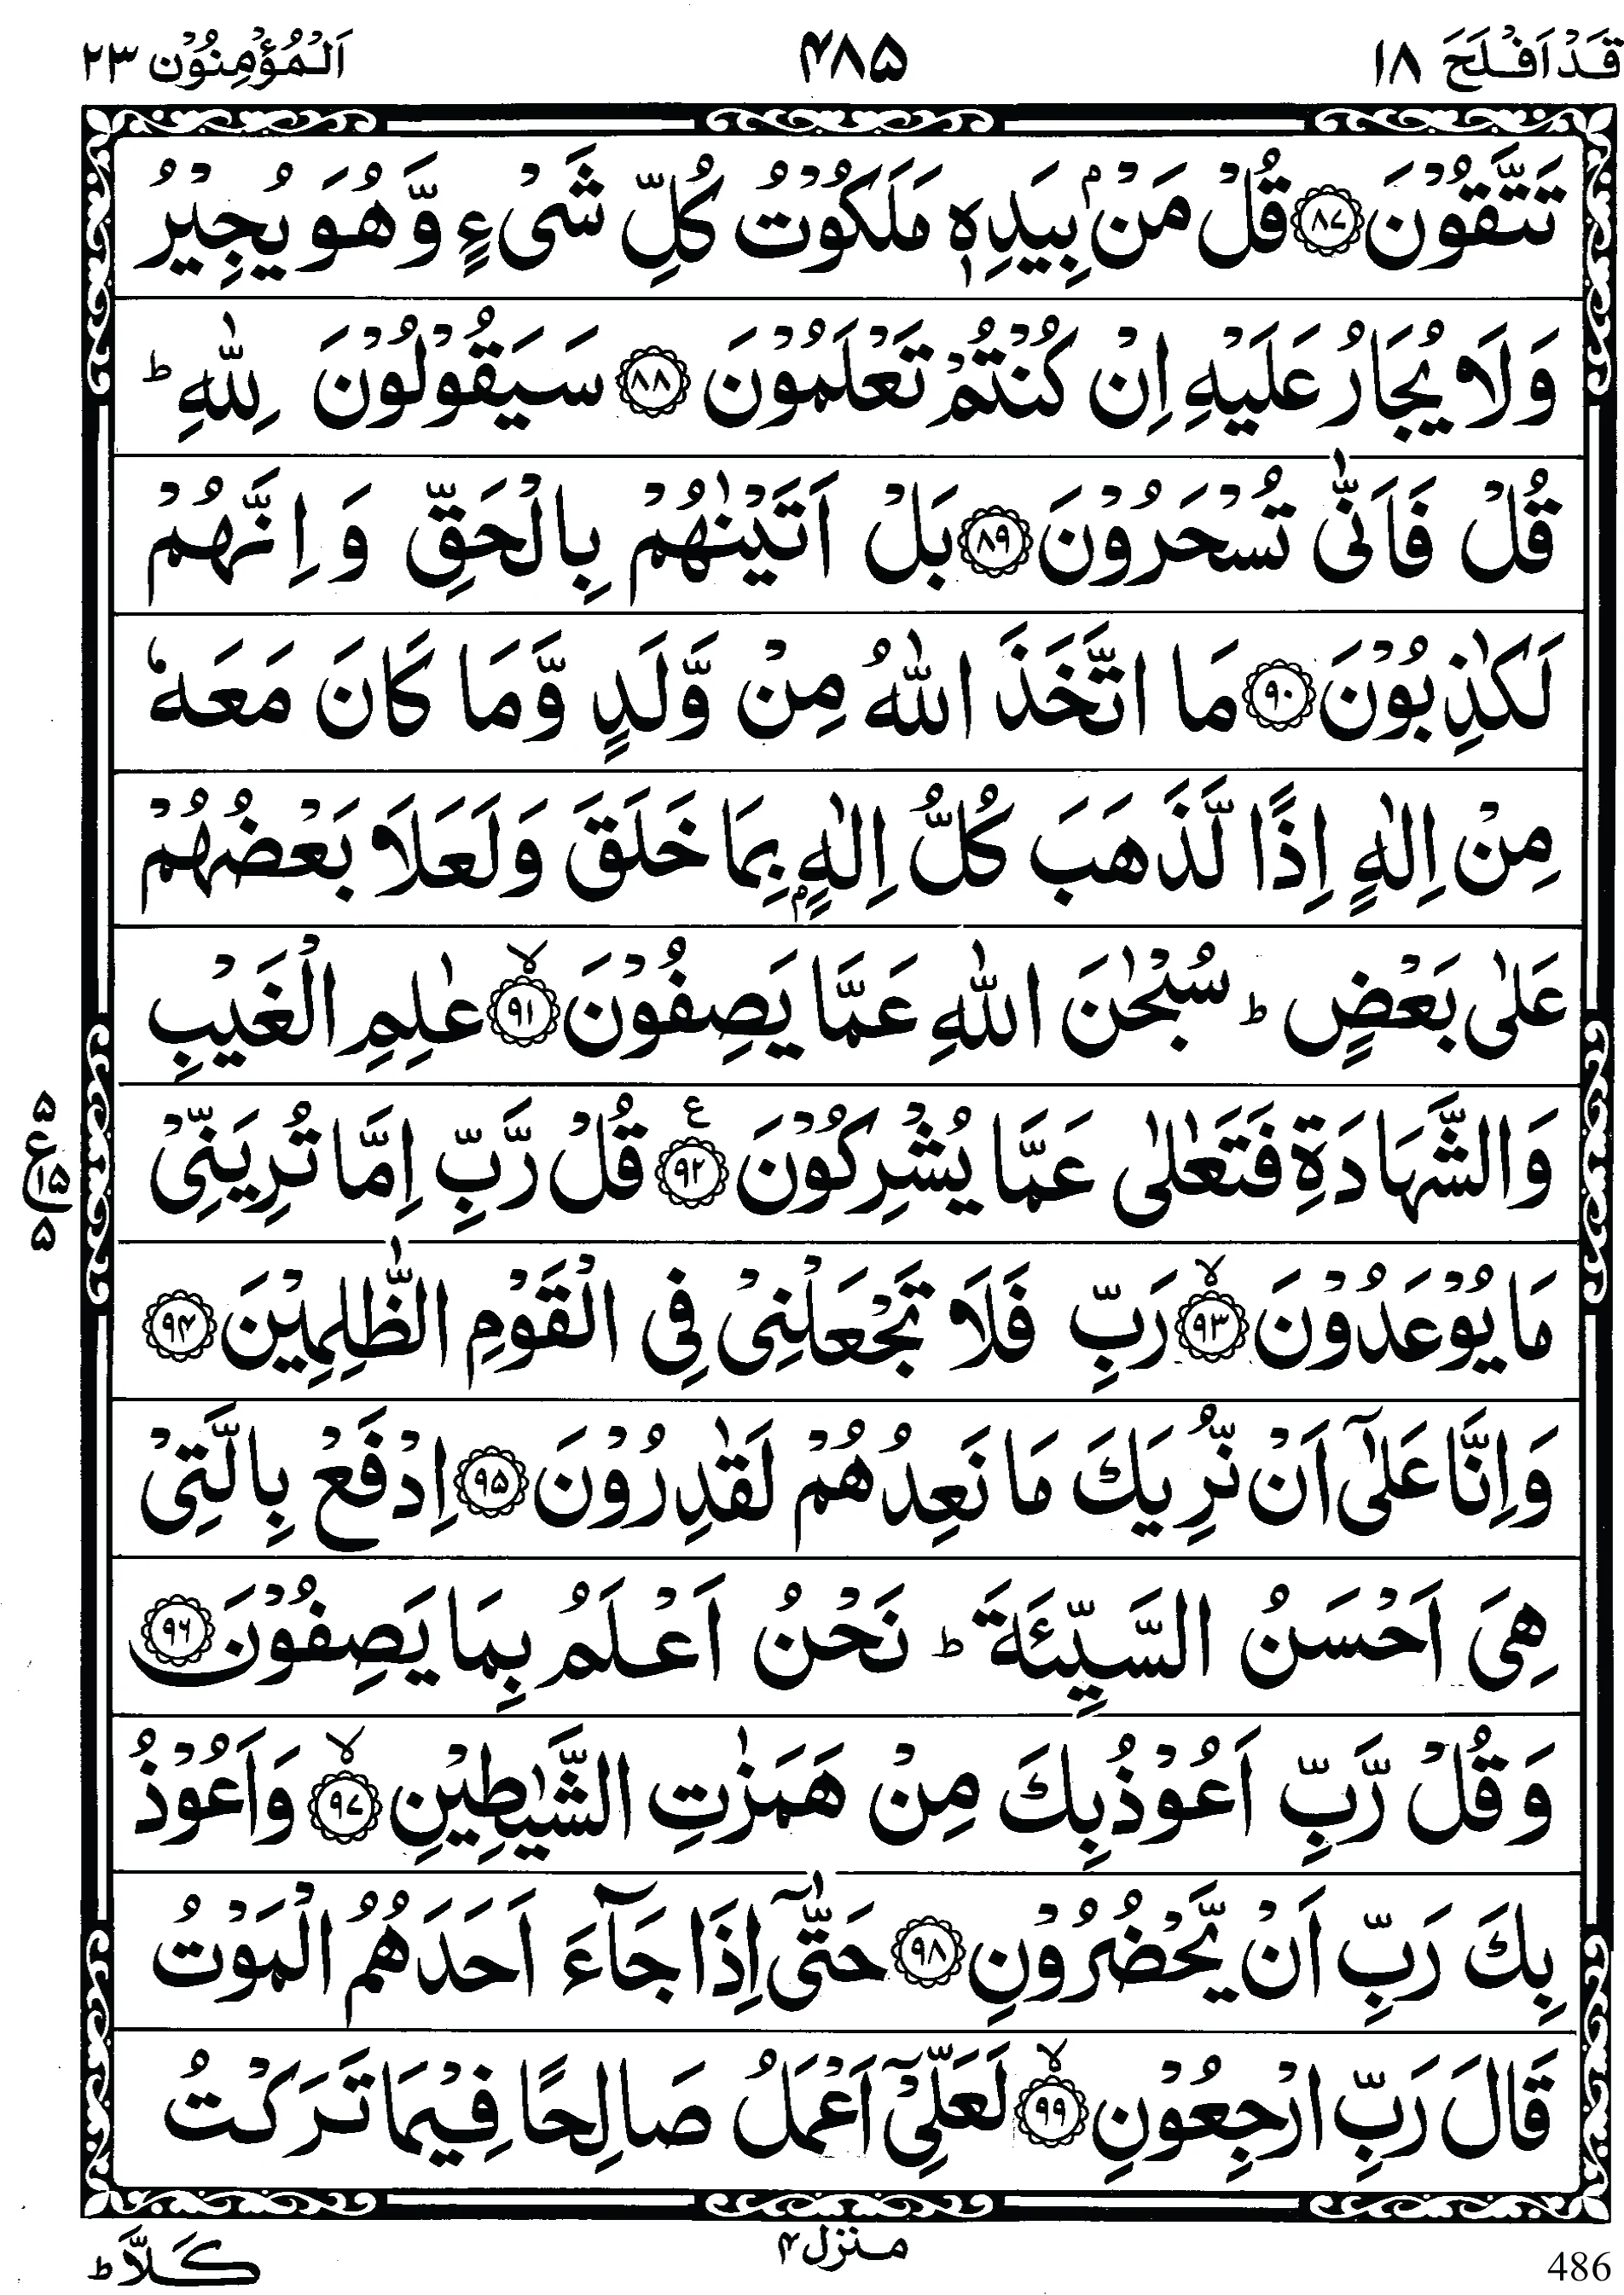 قَدْ اَفْلَحَ ۱۸ ۴۸۵ اَلْمُؤْمِنُوْن ۲۳
تَتَّقُوْنَ ۝۸۷ قُلْ مَنْۢ بِيَدِهٖ مَلَكُوْتُ كُلِّ شَیْءٍ وَّهُوَ يُجِيْرُ
وَلَا يُجَارُ عَلَيْهِ اِنْ كُنْتُمْ تَعْلَمُوْنَ ۝۸۸ سَيَقُوْلُوْنَ لِلّٰهِ ؕ
قُلْ فَاَنّٰی تُسْحَرُوْنَ ۝۸۹ بَلْ اَتَيْنٰهُمْ بِالْحَقِّ وَاِنَّهُمْ
لَكٰذِبُوْنَ ۝۹۰ مَا اتَّخَذَ اللّٰهُ مِنْ وَّلَدٍ وَّمَا كَانَ مَعَهٗ
مِنْ اِلٰهٍ اِذًا لَّذَهَبَ كُلُّ اِلٰهٍۭ بِمَا خَلَقَ وَلَعَلَا بَعْضُهُمْ
عَلٰی بَعْضٍ ؕ سُبْحٰنَ اللّٰهِ عَمَّا يَصِفُوْنَ ۝۹۱ۙ عٰلِمِ الْغَيْبِ
وَالشَّهَادَةِ فَتَعٰلٰی عَمَّا يُشْرِكُوْنَ ۝۹۲ ع قُلْ رَّبِّ اِمَّا تُرِيَنِّیْ
۵ ع ۱۵ ۵
مَا يُوْعَدُوْنَ ۝۹۳ۙ رَبِّ فَلَا تَجْعَلْنِیْ فِی الْقَوْمِ الظّٰلِمِيْنَ ۝۹۴
وَاِنَّا عَلٰۤی اَنْ نُّرِيَكَ مَا نَعِدُهُمْ لَقٰدِرُوْنَ ۝۹۵ اِدْفَعْ بِالَّتِیْ
هِیَ اَحْسَنُ السَّيِّئَةَ ؕ نَحْنُ اَعْلَمُ بِمَا يَصِفُوْنَ ۝۹۶
وَقُلْ رَّبِّ اَعُوْذُ بِكَ مِنْ هَمَزٰتِ الشَّيٰطِيْنِ ۝۹۷ۙ وَاَعُوْذُ
بِكَ رَبِّ اَنْ يَّحْضُرُوْنِ ۝۹۸ حَتّٰۤی اِذَا جَآءَ اَحَدَهُمُ الْمَوْتُ
قَالَ رَبِّ ارْجِعُوْنِ ۝۹۹ۙ لَعَلِّیْۤ اَعْمَلُ صَالِحًا فِيْمَا تَرَكْتُ
منزل ۴
كَلَّا ؕ
486